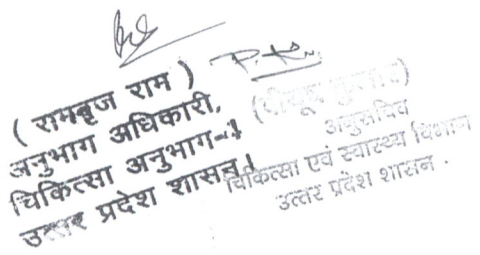 ( रामबृज राम )
अनुभाग अधिकारी,
चिकित्सा अनुभाग-1
उत्तर प्रदेश शासन।
अनुसचिव
चिकित्सा एवं स्वास्थ्य विभाग
उत्तर प्रदेश शासन .